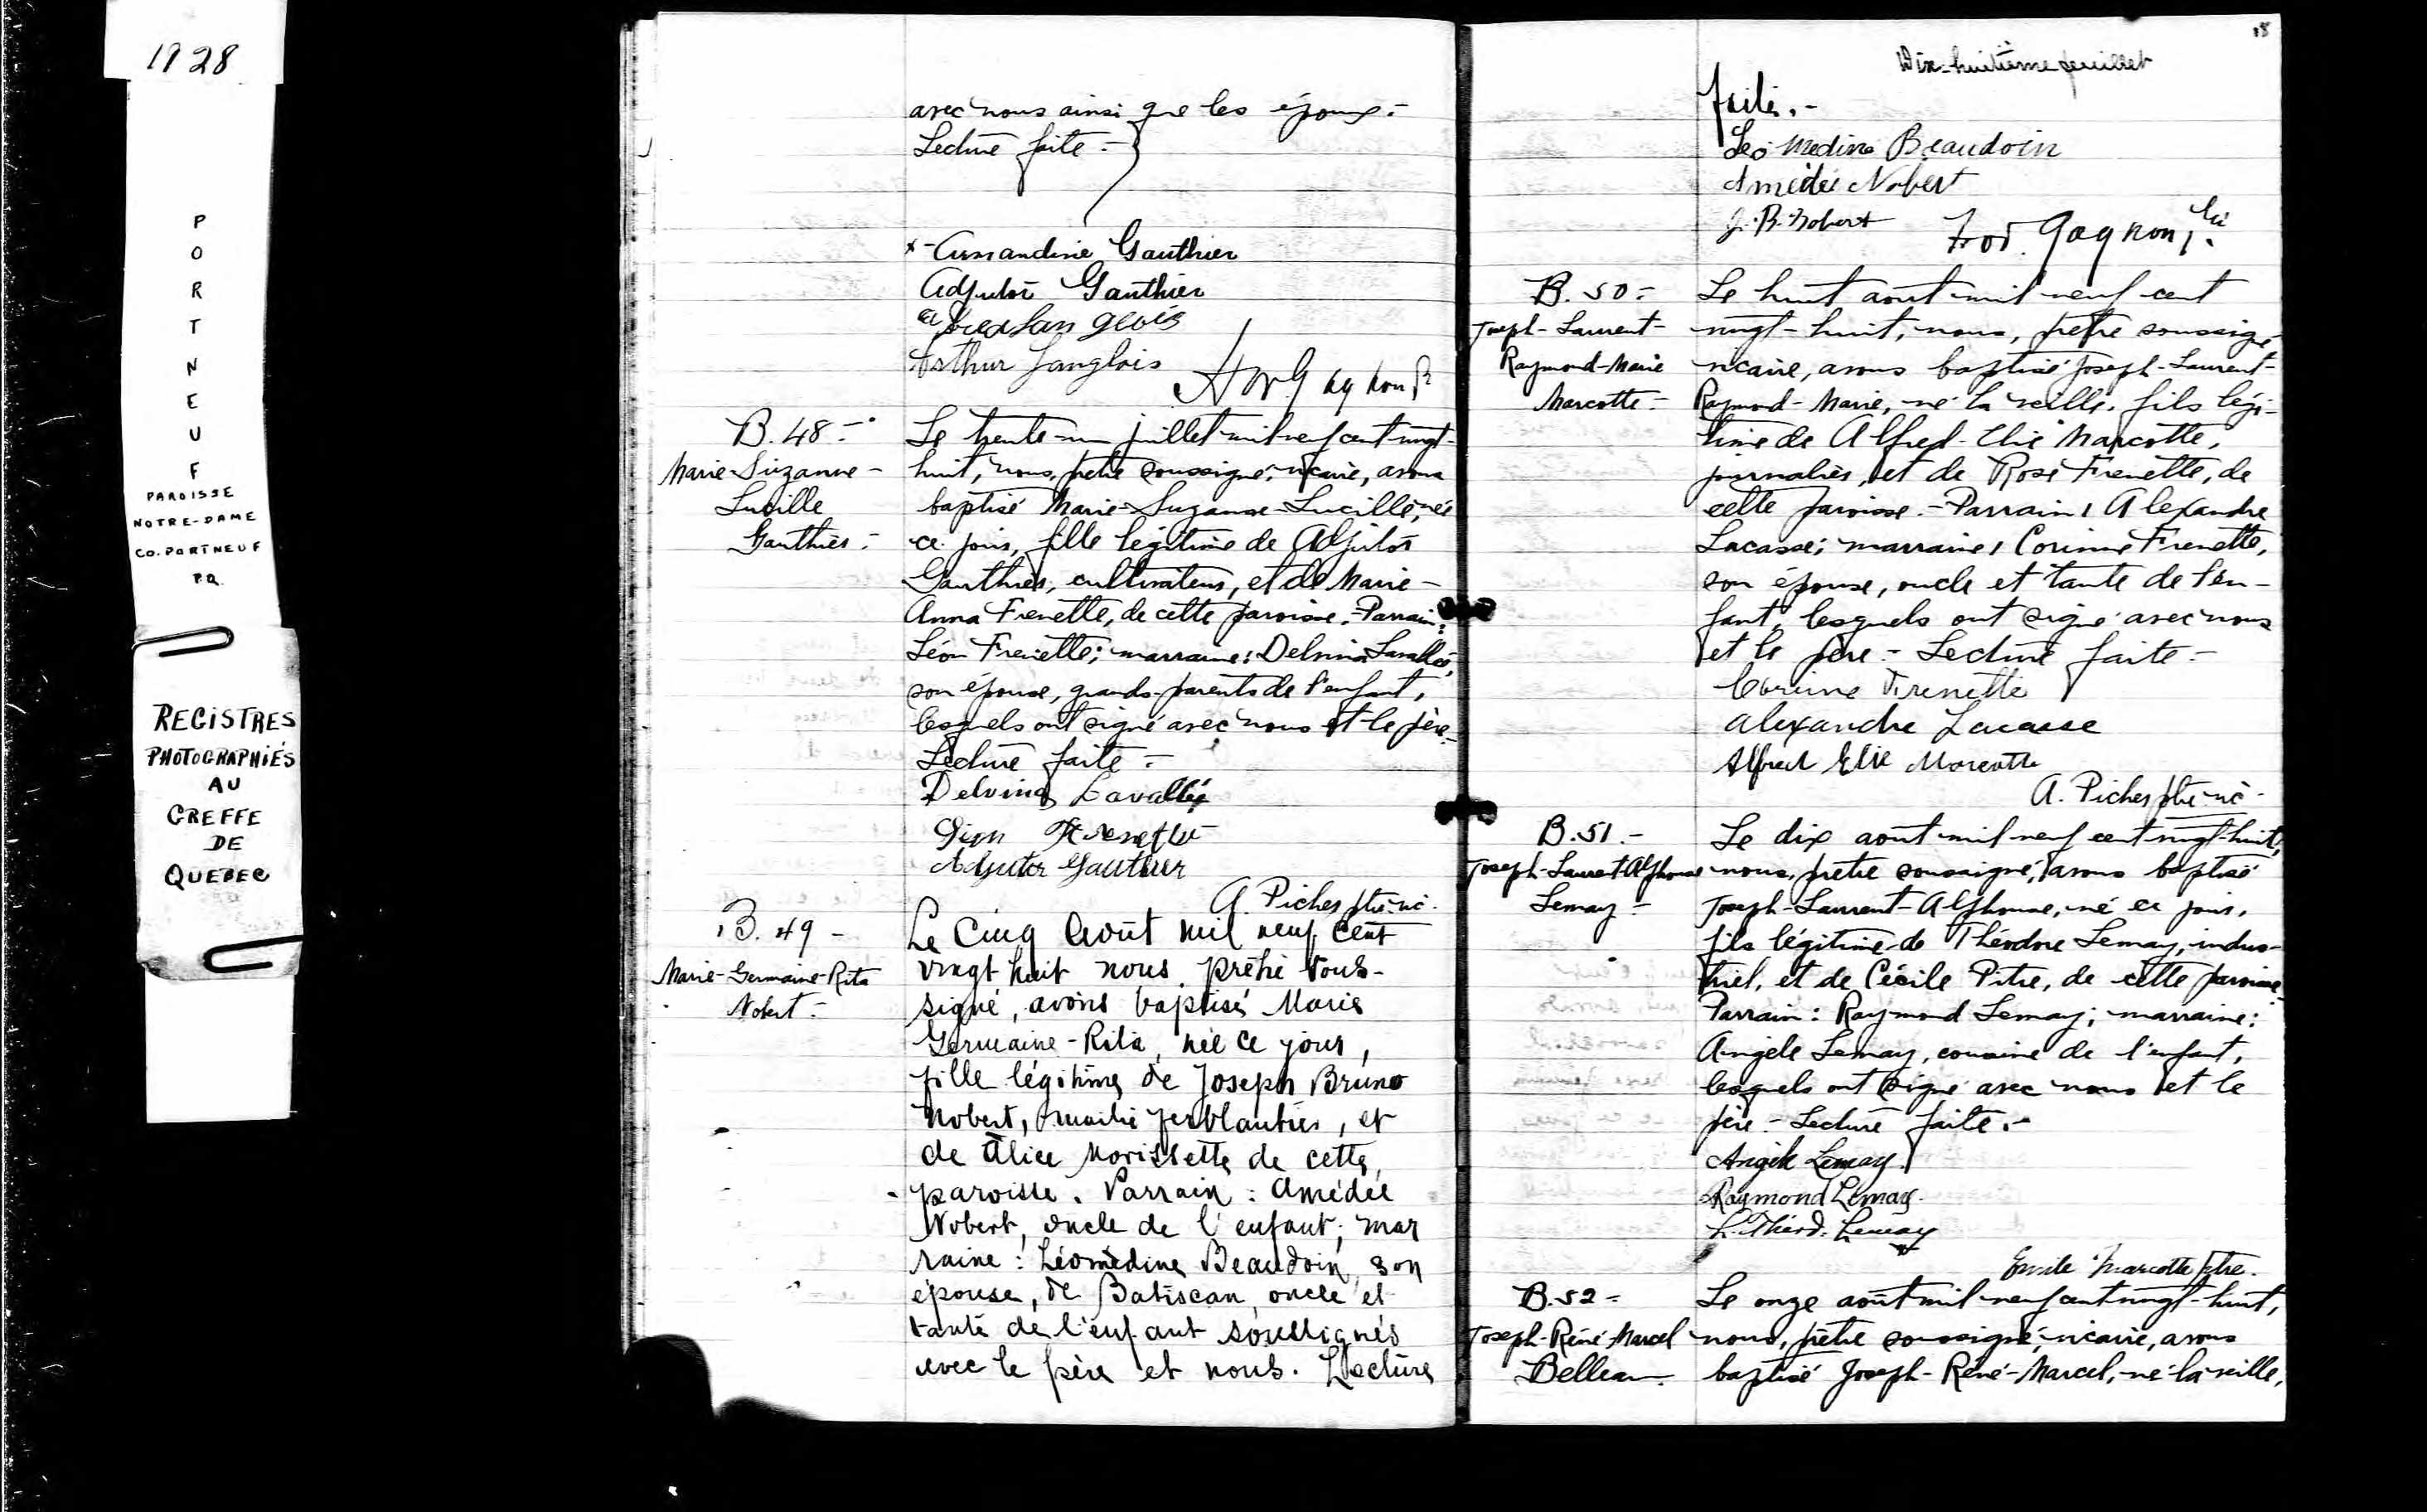 1928
PORTNEUF
PAROISSE
NOTRE-DAME
CO. PORTNEUF
P.Q.
REGISTRES
PHOTOGRAPHIÉS
AU
GREFFE
DE
QUEBEC
avec nous ainsi que les époux.-
Lecture faite.-
x- Armandine Gauthier
Adjutor Gauthier
Langlois
Arthur Langlois
B. 48.-
Marie-Suzanne-
Lucille
Gauthier.-
Le trente-un juillet mil neuf cent vingt-
huit, nous, prêtre soussigné, vicaire, avons
baptisé Marie-Suzanne-Lucille, née
ce jour, fille légitime de Adjutor
Gauthier, cultivateur, et de Marie-
Anna Frenette, de cette paroisse.- Parrain:
Léon Frenette; marraine: Delvina Lavallée,
son épouse, grands-parents de l'enfant,
lesquels ont signé avec nous et le père.-
Lecture faite.-
Delvina Lavallée
Léon Frenette
Adjutor Gauthier
A. Piché, ptre vic.
B. 49 -
Marie-Germaine-Rita
Nobert.-
Le Cinq Août mil neuf cent
vingt huit nous, prêtre sous-
signé, avons baptisé Marie
Germaine-Rita, née ce jour,
fille légitime de Joseph Bruno
Nobert, maître ferblantier, et
de Alice Morissette de cette
paroisse. Parrain: Amédée
Nobert, oncle de l'enfant; mar
raine: Léomédine Beaudoin, son
épouse, de Batiscan, oncle et
tante de l'enfant soussignés
avec le père et nous. Lecture
18
Dix-huitième feuillet
faite.-
Léo Médine Beaudoin
Amédée Nobert
J. B. Nobert
Gagnon
B. 50.-
Joseph-Laurent-
Raymond-Marie
Marcotte.-
Le huit août mil neuf cent
vingt-huit, nous, prêtre soussigné,
vicaire, avons baptisé Joseph-Laurent-
Raymond-Marie, né la veille, fils légi-
time de Alfred-Elie Marcotte,
journalier, et de Rose Frenette, de
cette paroisse.- Parrain, Alexandre
Lacasse; marraine, Corinne Frenette,
son épouse, oncle et tante de l'en-
fant, lesquels ont signé avec nous
et le père.- Lecture faite.-
Corinne Frenette
Alexandre Lacasse
Alfred Elie Marcotte
A. Piché, ptre vic.
B. 51.-
Joseph-Laurent-Alphonse
Lemay.-
Le dix août mil neuf cent vingt-huit,
nous, prêtre soussigné, avons baptisé
Joseph-Laurent-Alphonse, né ce jour,
fils légitime de Théodore Lemay, indus-
triel, et de Cécile Pitre, de cette paroisse.
Parrain: Raymond Lemay; marraine:
Angèle Lemay, cousine de l'enfant,
lesquels ont signé avec nous et le
père.- Lecture faite.-
Angèle Lemay
Raymond Lemay.
L. Théod. Lemay
Emile Marcotte ptre.
B. 52 -
Joseph-Réné-Marcel
Belleau.
Le onze août mil neuf cent vingt-huit,
nous, prêtre soussigné, vicaire, avons
baptisé Joseph-Réné-Marcel, né la veille,